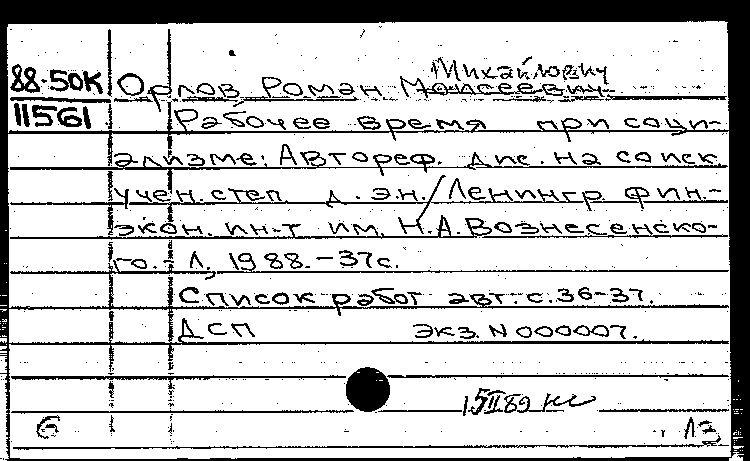 Михайлович
88-50К Орлов Роман Моисеевич
11561 Рабочее время при соци-
ализме: Автореф. дис. на соиск.
учен. степ. д. э.н. / Ленингр. фин.-
экон. ин-т им. Н.А. Вознесенско-
го. - Л., 1988. - 37с.
Список работ авт.: с. 36-37.
ДСП экз. N 000007.
15II89
6 ЛЗ